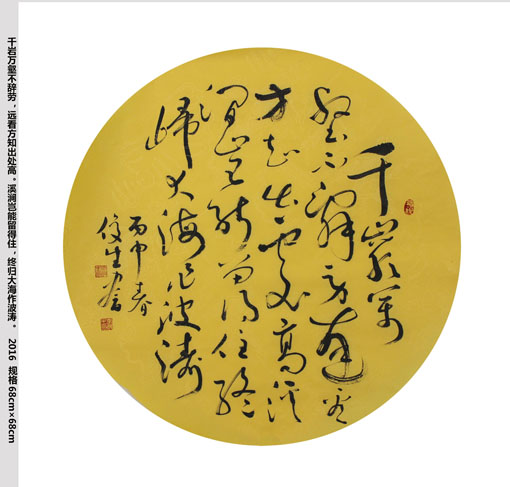 千岩万壑不辞劳，远看方知出处高。溪涧岂能留得住，终归大海作波涛。 2016 规格68cm×68cm
千巖萬
壑不辭勞遠看
方知出處高溪
澗豈能留得住終
歸大海作波濤
丙申春
俊生書